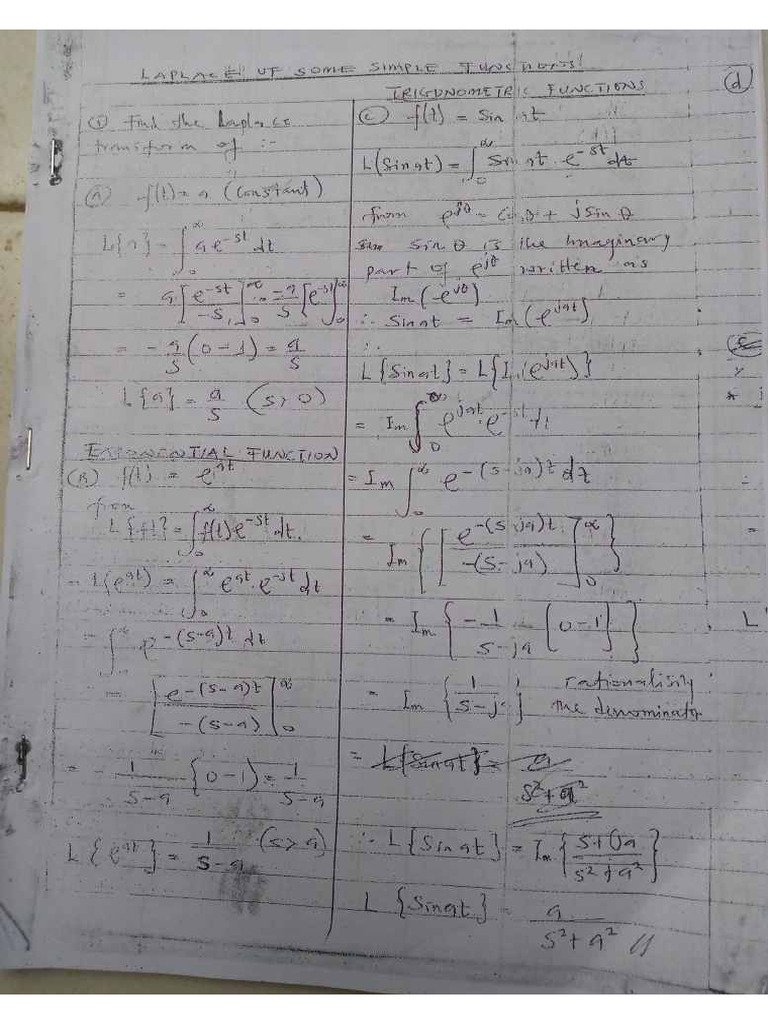 LAPLACE OF SOME SIMPLE FUNCTIONS
① Find the Laplace
transform of :-
(a) f(t) = a (constant)
L{a} = ∫₀^∞ a e^-st dt
= a [e^-st / -s]₀^∞ = -a/s [e^-st]₀^∞
= -a/s (0 - 1) = a/s
L{a} = a/s (s > 0)
EXPONENTIAL FUNCTION
(B) f(t) = e^at
from
L{ft} = ∫₀^∞ f(t) e^-st dt.
L(e^at) = ∫₀^∞ e^at . e^-st dt
= ∫₀^∞ e^-(s-a)t dt
= [e^-(s-a)t / -(s-a)]₀^∞
= - 1/s-a {0-1} = 1/s-a
L{e^at} = 1/s-a (s > a)
TRIGONOMETRIC FUNCTIONS
(c) f(t) = Sin at
L(Sin at) = ∫₀^∞ Sin at . e^-st dt
from e^jθ = Cos θ + j Sin θ
Sin θ is the imaginary
part of e^jθ written as
Im(e^jθ)
∴ Sin at = Im(e^jat)
∴
L{Sin at} = L{Im(e^jat)}
= Im ∫₀^∞ e^jat . e^-st dt
= Im ∫₀^∞ e^-(s-ja)t dt
= Im {[e^-(s-ja)t / -(s-ja)]₀^∞}
= Im {-1/s-ja [0-1]}
= Im {1/s-ja} rationalising
the denominator
= L{Sin at} = a / s²+a²
∴ L{Sin at} = Im {s+ja / s²+a²}
L{Sin at} = a / s²+a² //
(d)
L